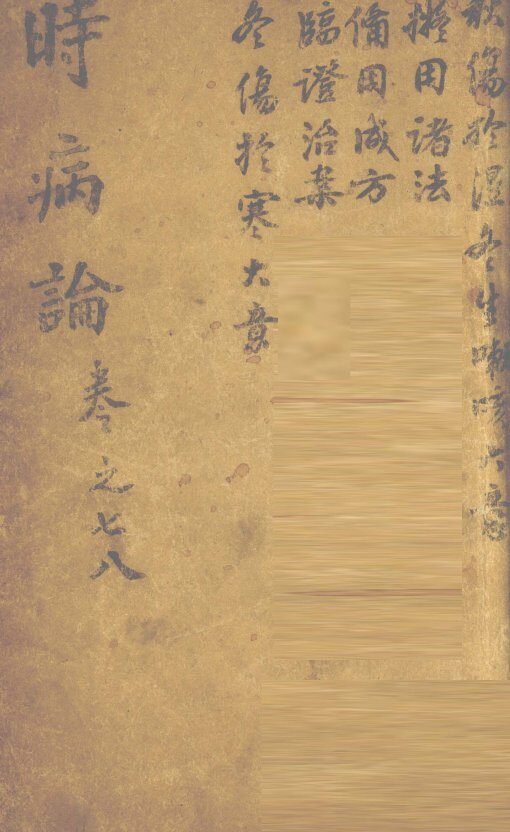 秋傷於濕冬生咳嗽大意
擬用諸法
備用成方
臨證治案
冬傷於寒大意
時病論
卷之七八